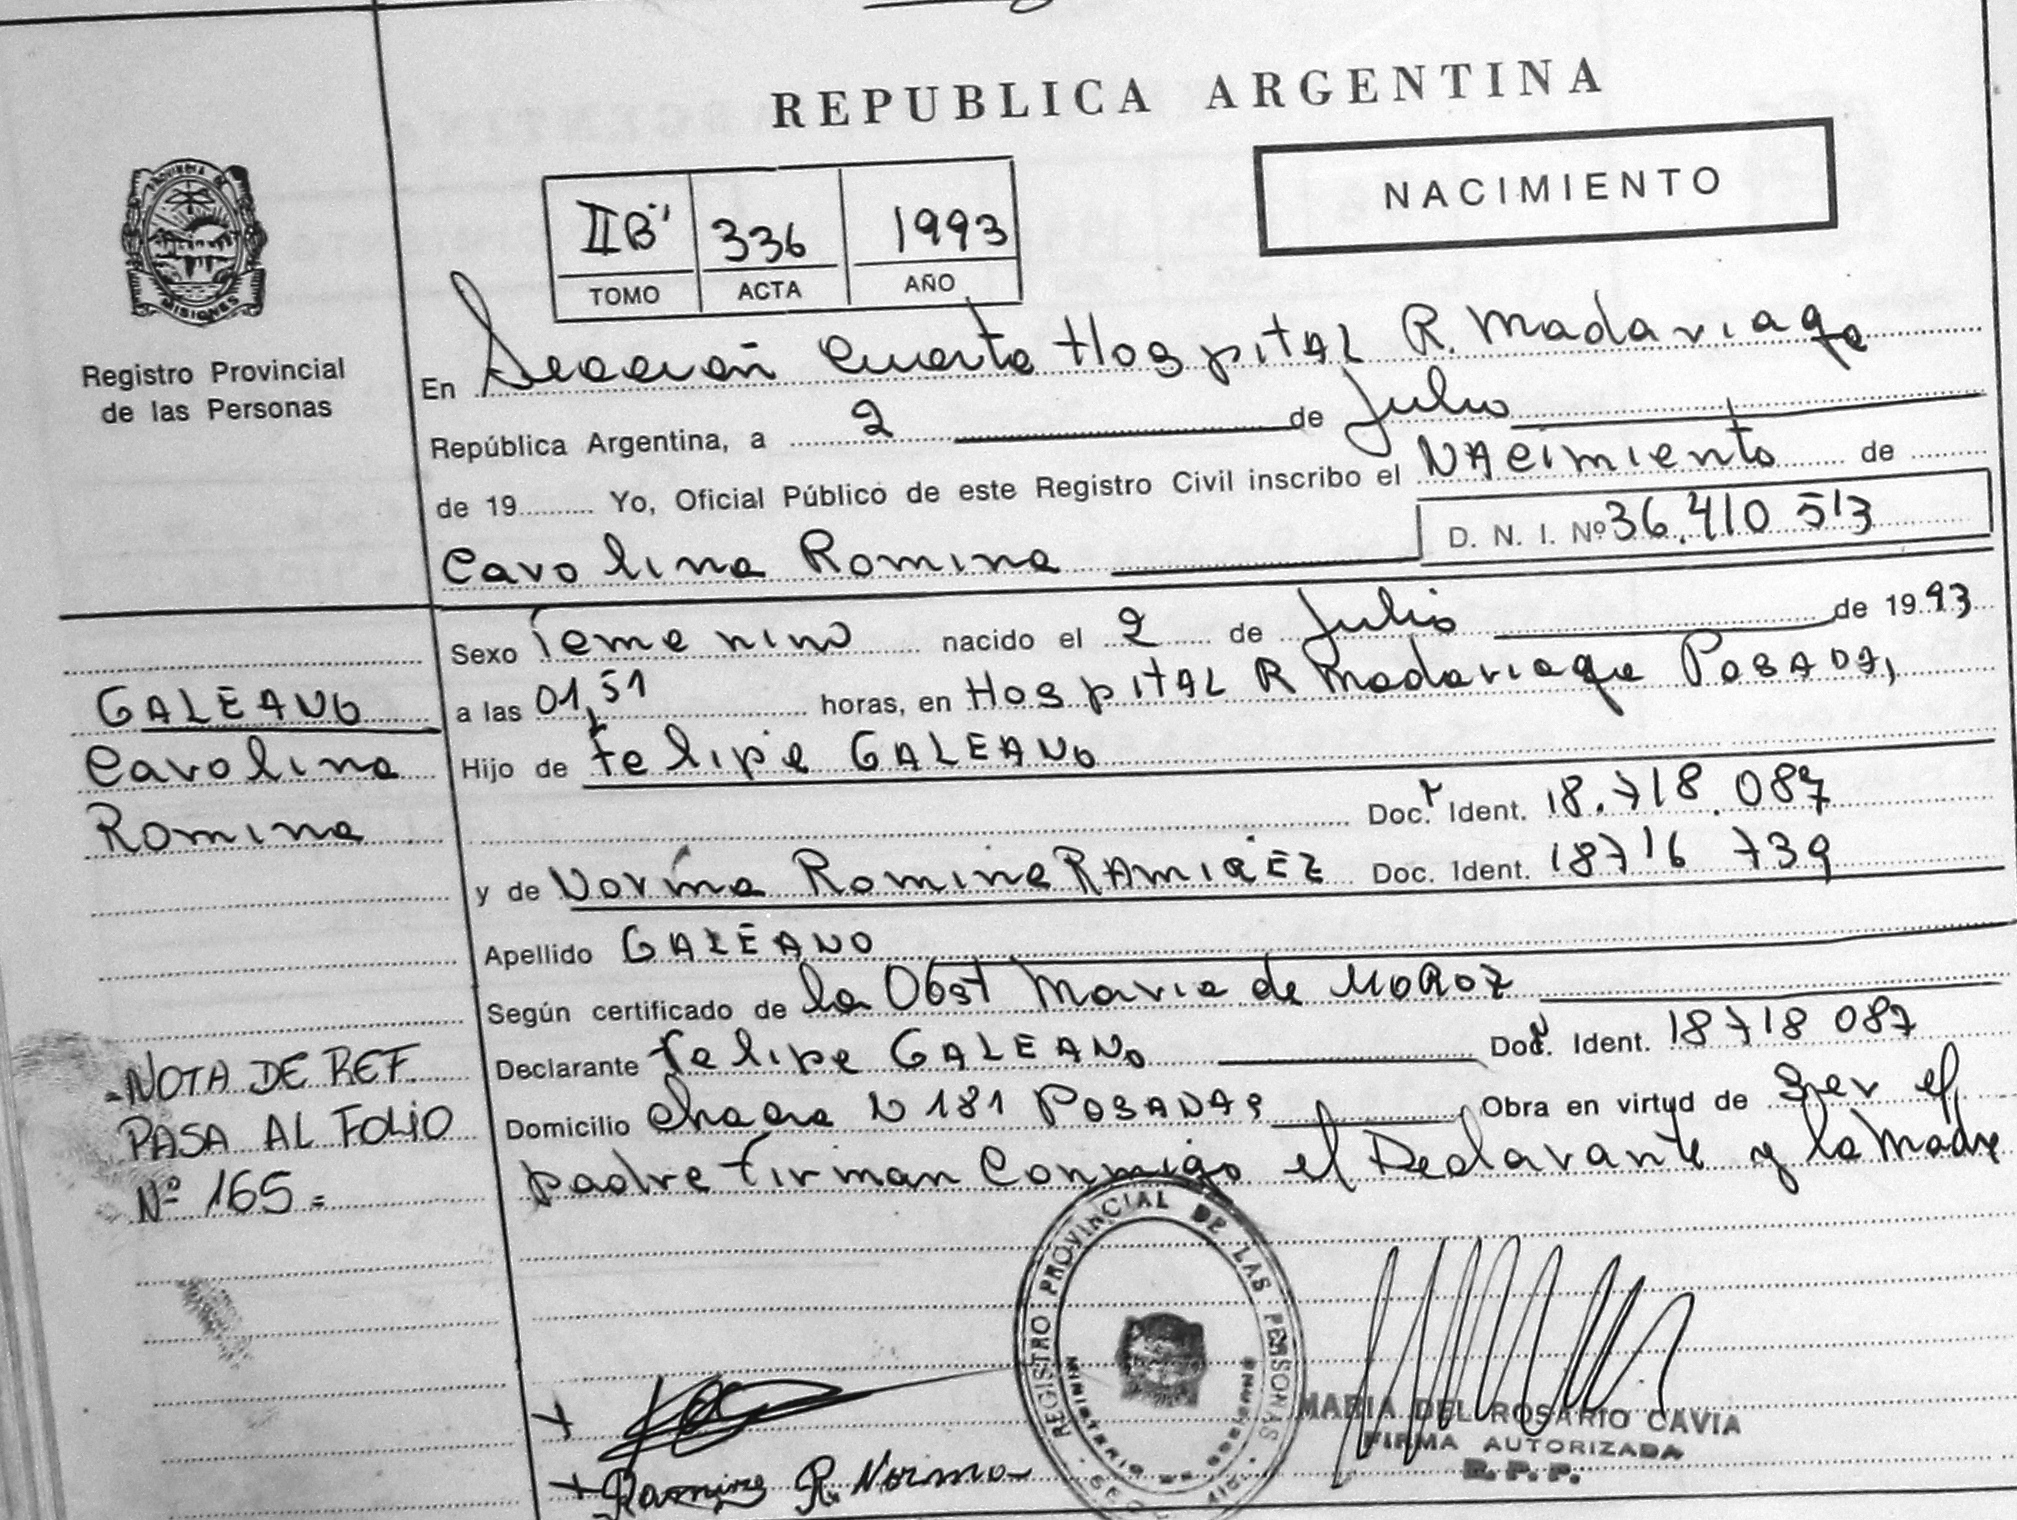 REPUBLICA ARGENTINA
NACIMIENTO
PROVINCIA DE
MISIONES
Registro Provincial
de las Personas
II"B" 336 1993
TOMO ACTA AÑO
En Sección Cuarta Hospital R. Madariaga
República Argentina, a 2 de Julio
de 19 Yo, Oficial Público de este Registro Civil inscribo el NAcimiento de
Carolina Romina
D. N. I. Nº 36.410 513
Sexo Femenino nacido el 2 de Julio de 1993
a las 01,51 horas, en Hospital R Madariaga Posadas
GALEANO
Carolina
Romina
Hijo de Felipe GALEANO
Doc. Ident. 18.718.087
y de Norma Romina RAMIREZ Doc. Ident. 18716 739
Apellido GALEANO
Según certificado de la Obst Maria de MOROZ
Declarante Felipe GALEANO Doc. Ident. 18718 087
Domicilio Chacra N 181 POSADAS Obra en virtud de Ser el
padre Firman Conmigo el Declarante y la Madre
NOTA DE REF.
PASA AL FOLIO
Nº 165=
REGISTRO PROVINCIAL DE LAS PERSONAS
MINISTERIO DE GOBIERNO
MARIA DEL ROSARIO CAVIA
FIRMA AUTORIZADA
R. P. P.
Ramirez R. Norma